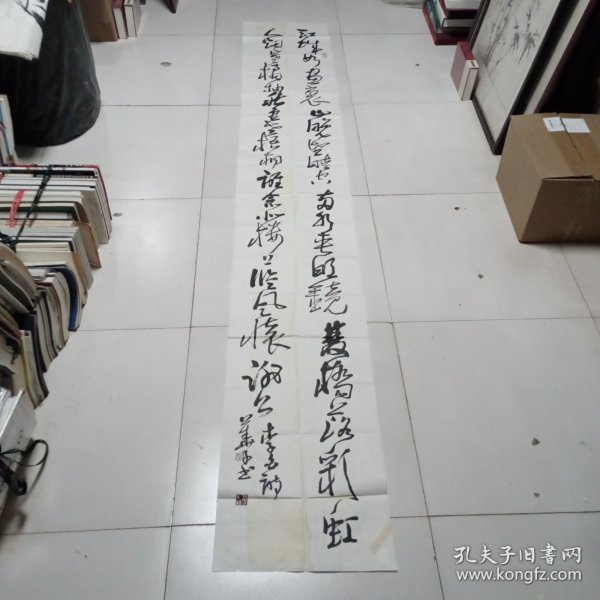 江城如画里山晓望晴空两水夹明镜双桥落彩虹
人烟寒橘柚秋色老梧桐谁念北楼上临风怀谢公
李白诗
书
孔夫子旧书网
www.kongfz.com